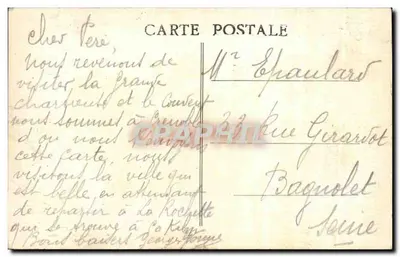 CARTE POSTALE
Cher Père
nous revenons de
visiter la Grande
chartreuse et le Couvent
nous sommes à Grenoble
d où nous
cette Carte, nous
visitons la ville qui
est belle en attendant
de repartir à La Rochette
qui se trouve à
Bons baisers Georges
Mr Epaulard
Rue Girardot
Bagnolet
Seine